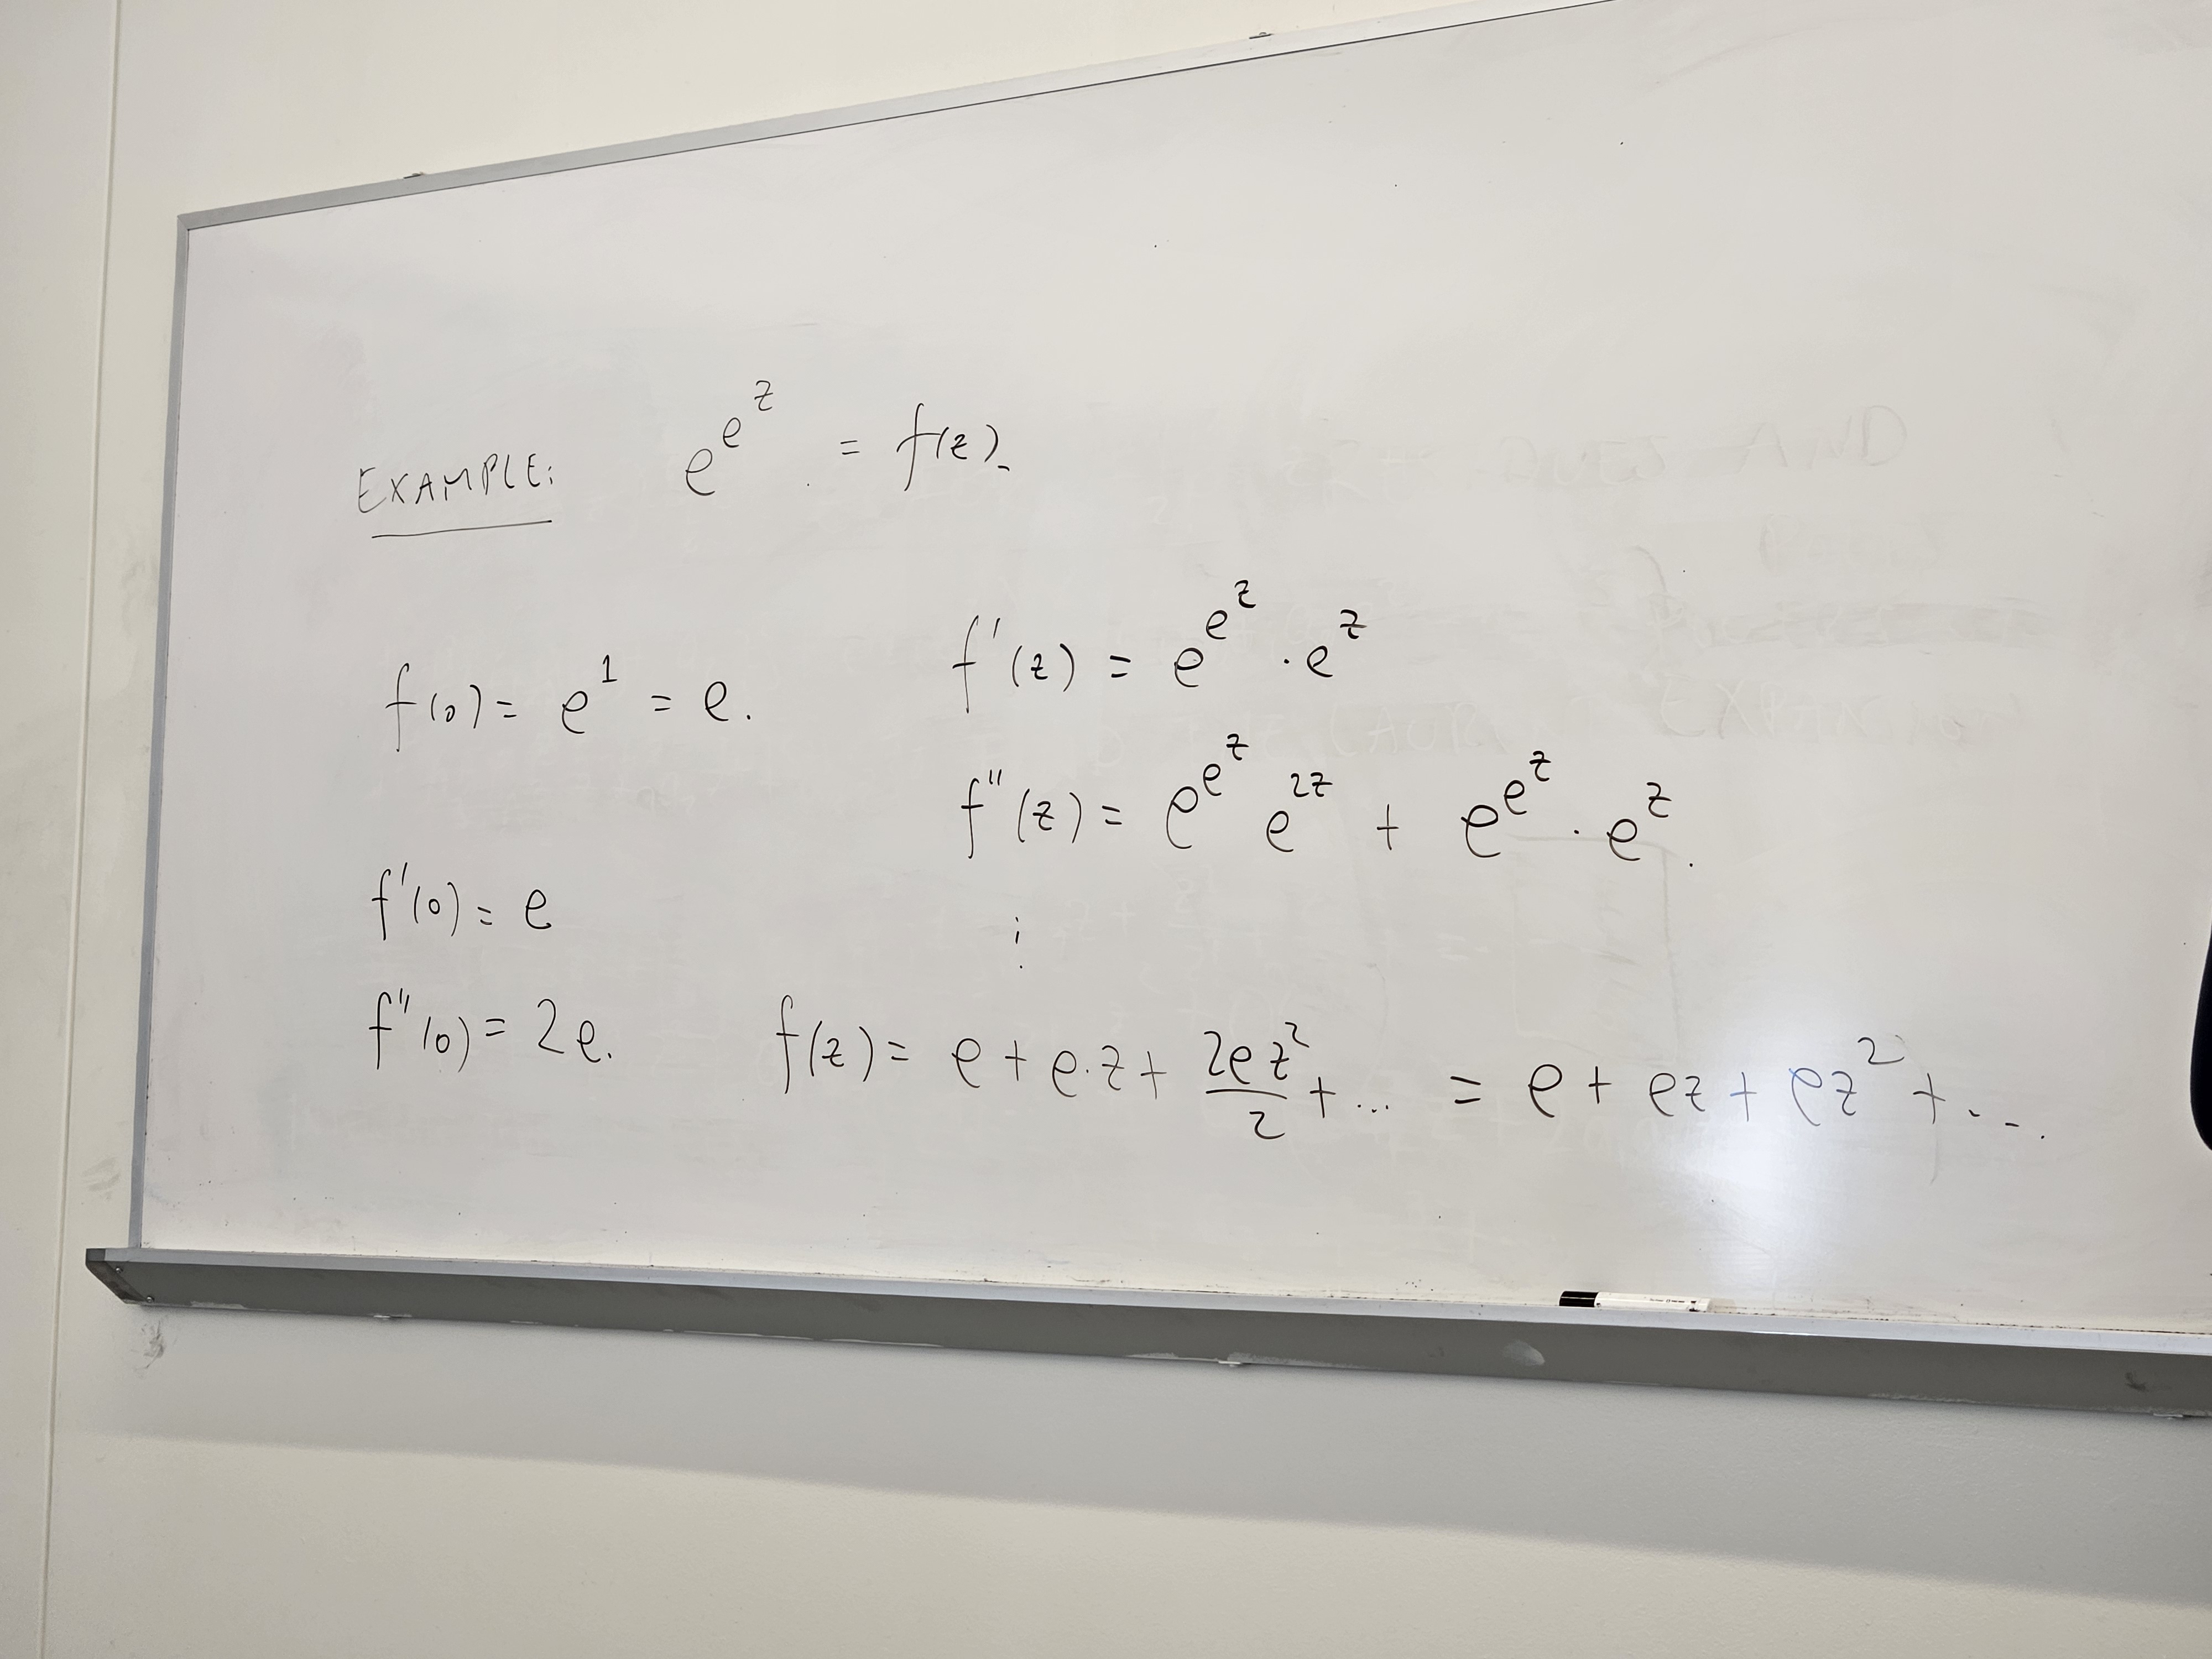 EXAMPLE: e^{e^z} = f(z).
f(0) = e^1 = e.
f'(z) = e^{e^z} · e^z
f''(z) = e^{e^z} e^{2z} + e^{e^z} · e^z.
⋮
f'(0) = e
f''(0) = 2e.
f(z) = e + e·z + \frac{2ez^2}{2} + ... = e + ez + ez^2 + ...